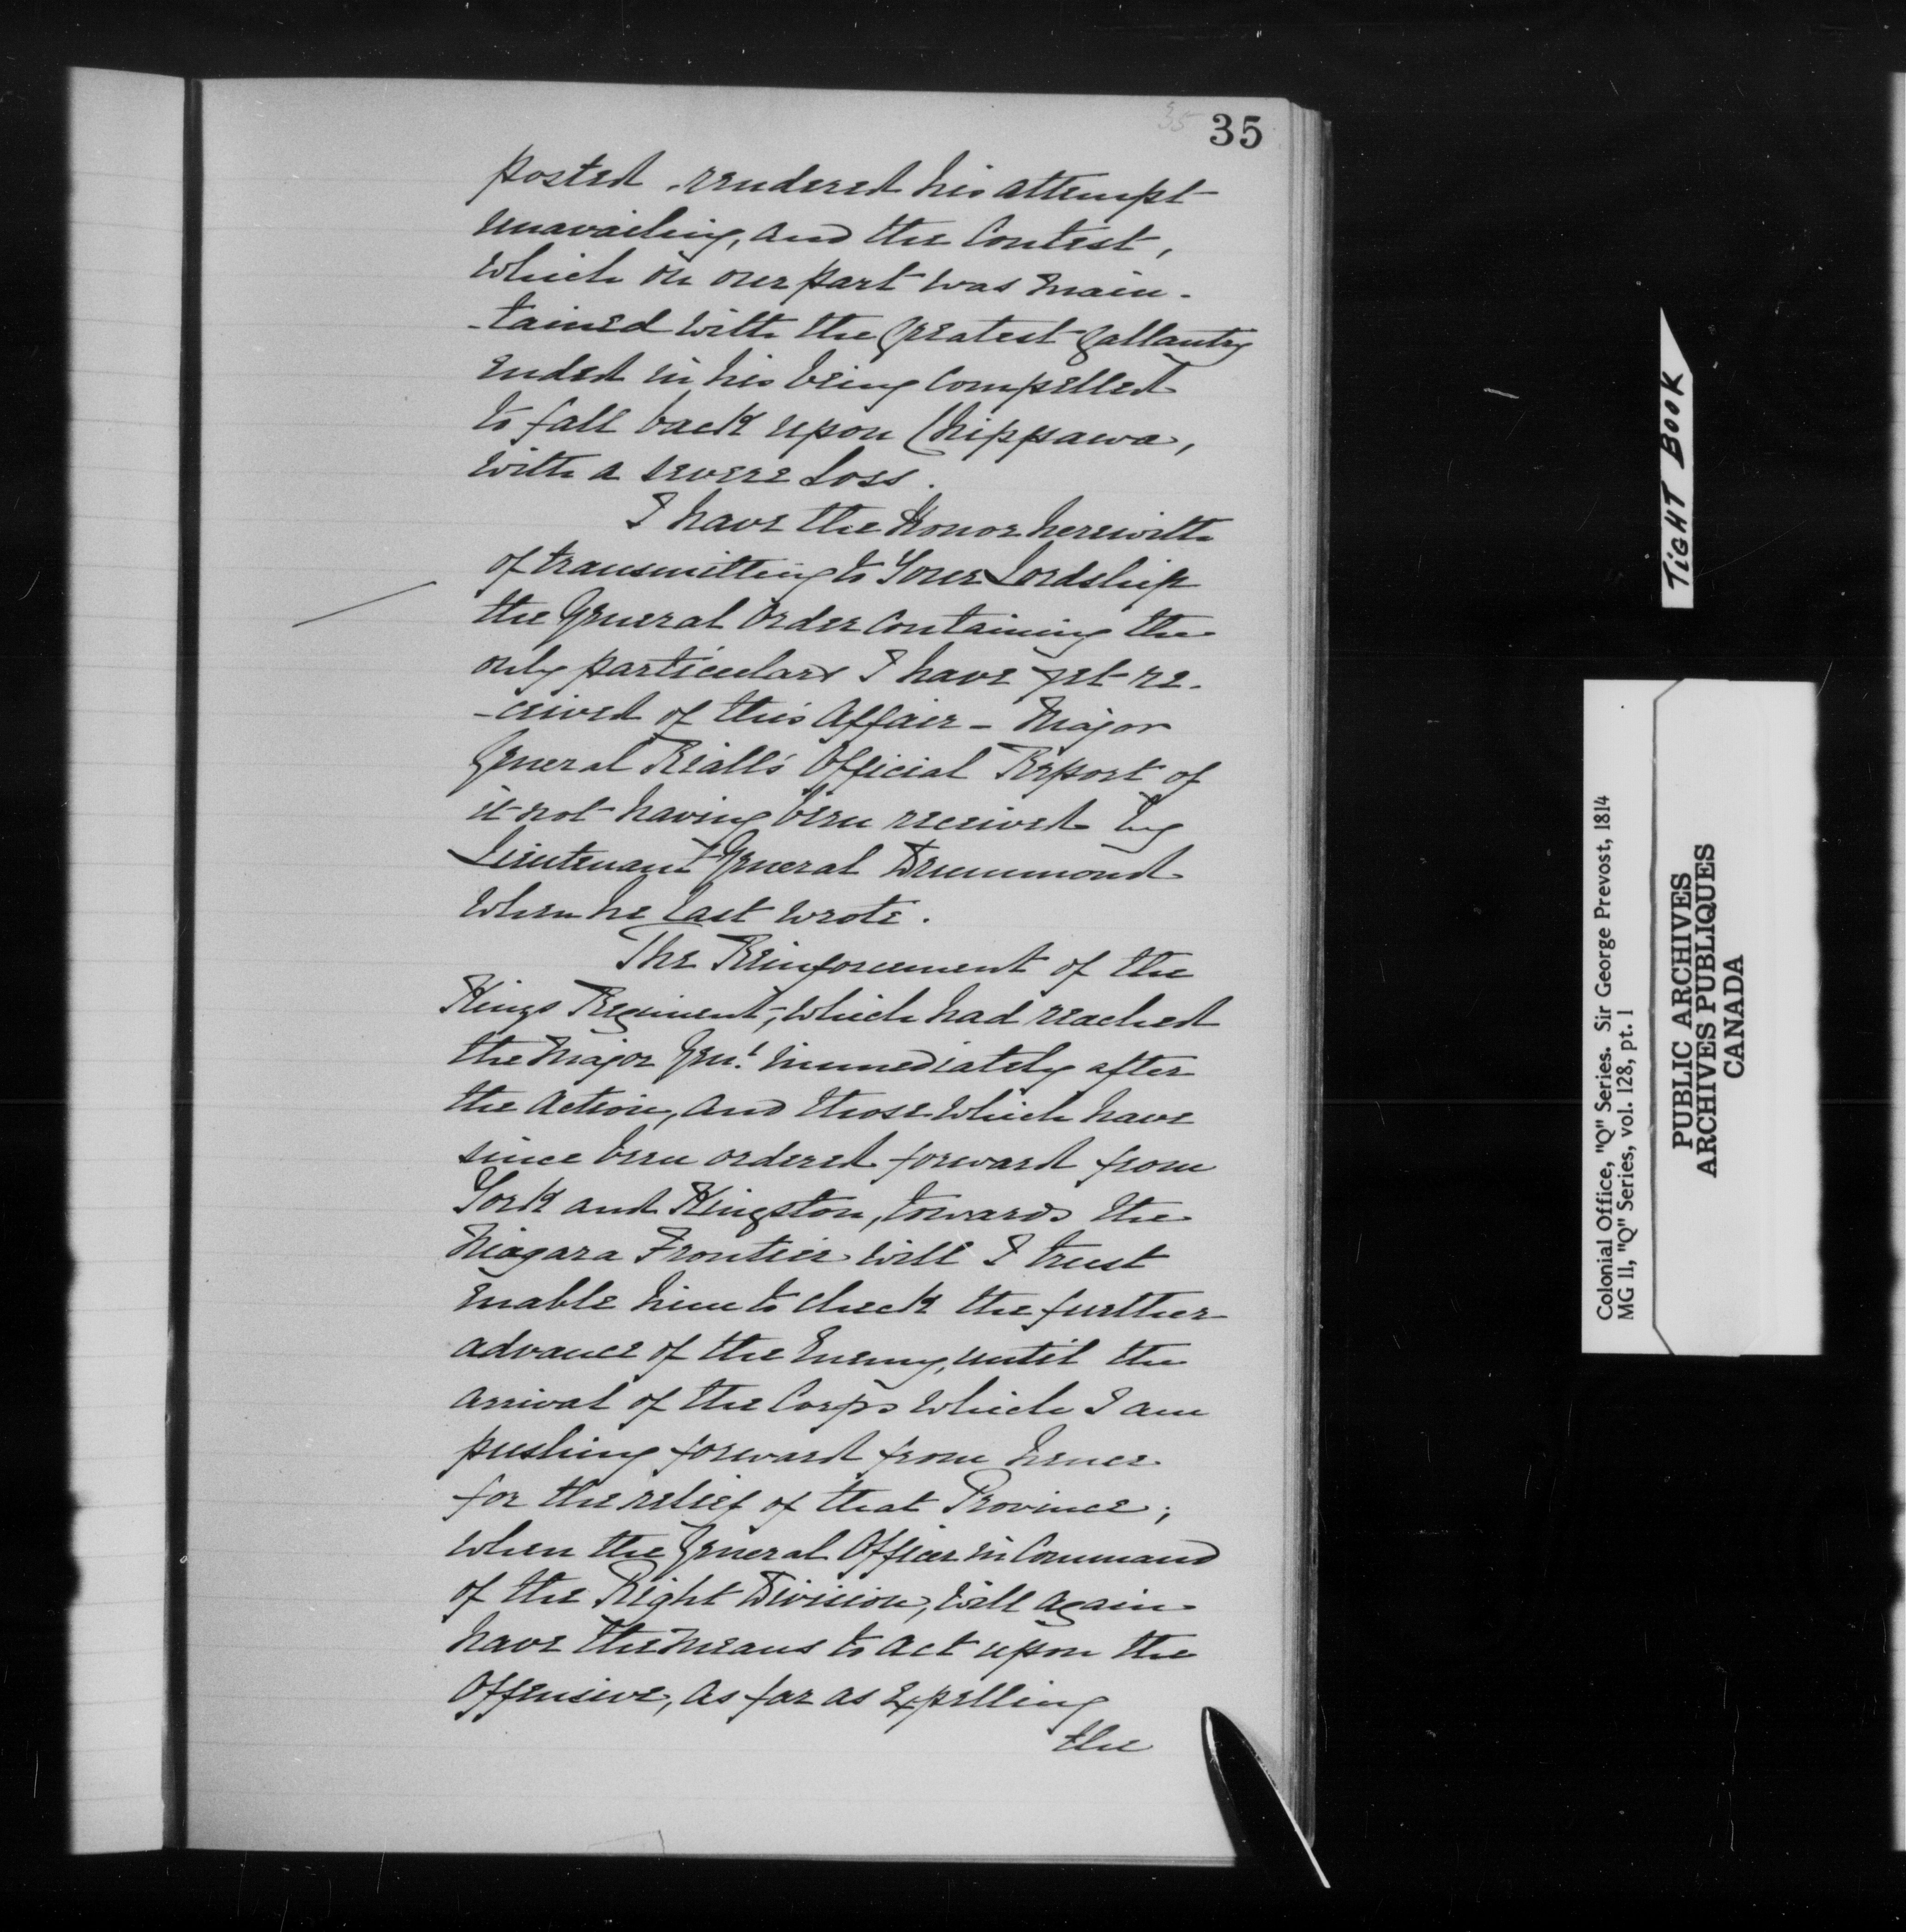 35
35
posted, rendered his attempt
unavailing, and the Contest,
which on our part was main-
-tained with the greatest gallantry
ended in his being compelled
to fall back upon Chippawa,
with a severe loss.
I have the Honor herewith
of transmitting to Your Lordship
the General Order containing the
only particulars I have yet re-
-ceived of this Affair - Major
General Riall's Official Report of
it not having been received by
Lieutenant General Drummond
when he last wrote.
The Reinforcement of the
Kings Regiment, which had reached
the Major Genl. immediately after
the action, and those which have
since been ordered forward from
York and Kingston, towards the
Niagara Frontier will I trust
enable him to check the further
advance of the Enemy, until the
arrival of the Corps which I am
pushing forward from hence
for the relief of that Province;
when the General Officer in Command
of the Right Division, will again
have the means to act upon the
Offensive, as far as expelling
the
TIGHT BOOK
Colonial Office, "Q" Series. Sir George Prevost, 1814
MG 11, "Q" Series, vol. 128, pt. 1
PUBLIC ARCHIVES
ARCHIVES PUBLIQUES
CANADA